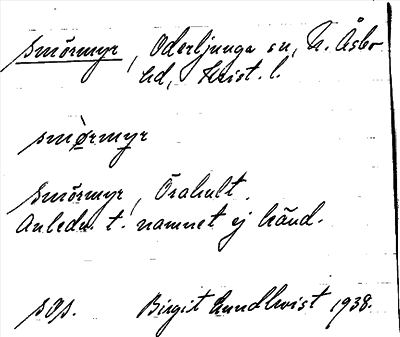 Smörmyr, Oderljunga sn, N. Åsbo
hd, Krist. l.
smørmyr
Smörmyr, Örahult.
Anledn. t. namnet ej känd.
sgs. Birgit Lundkvist 1938.